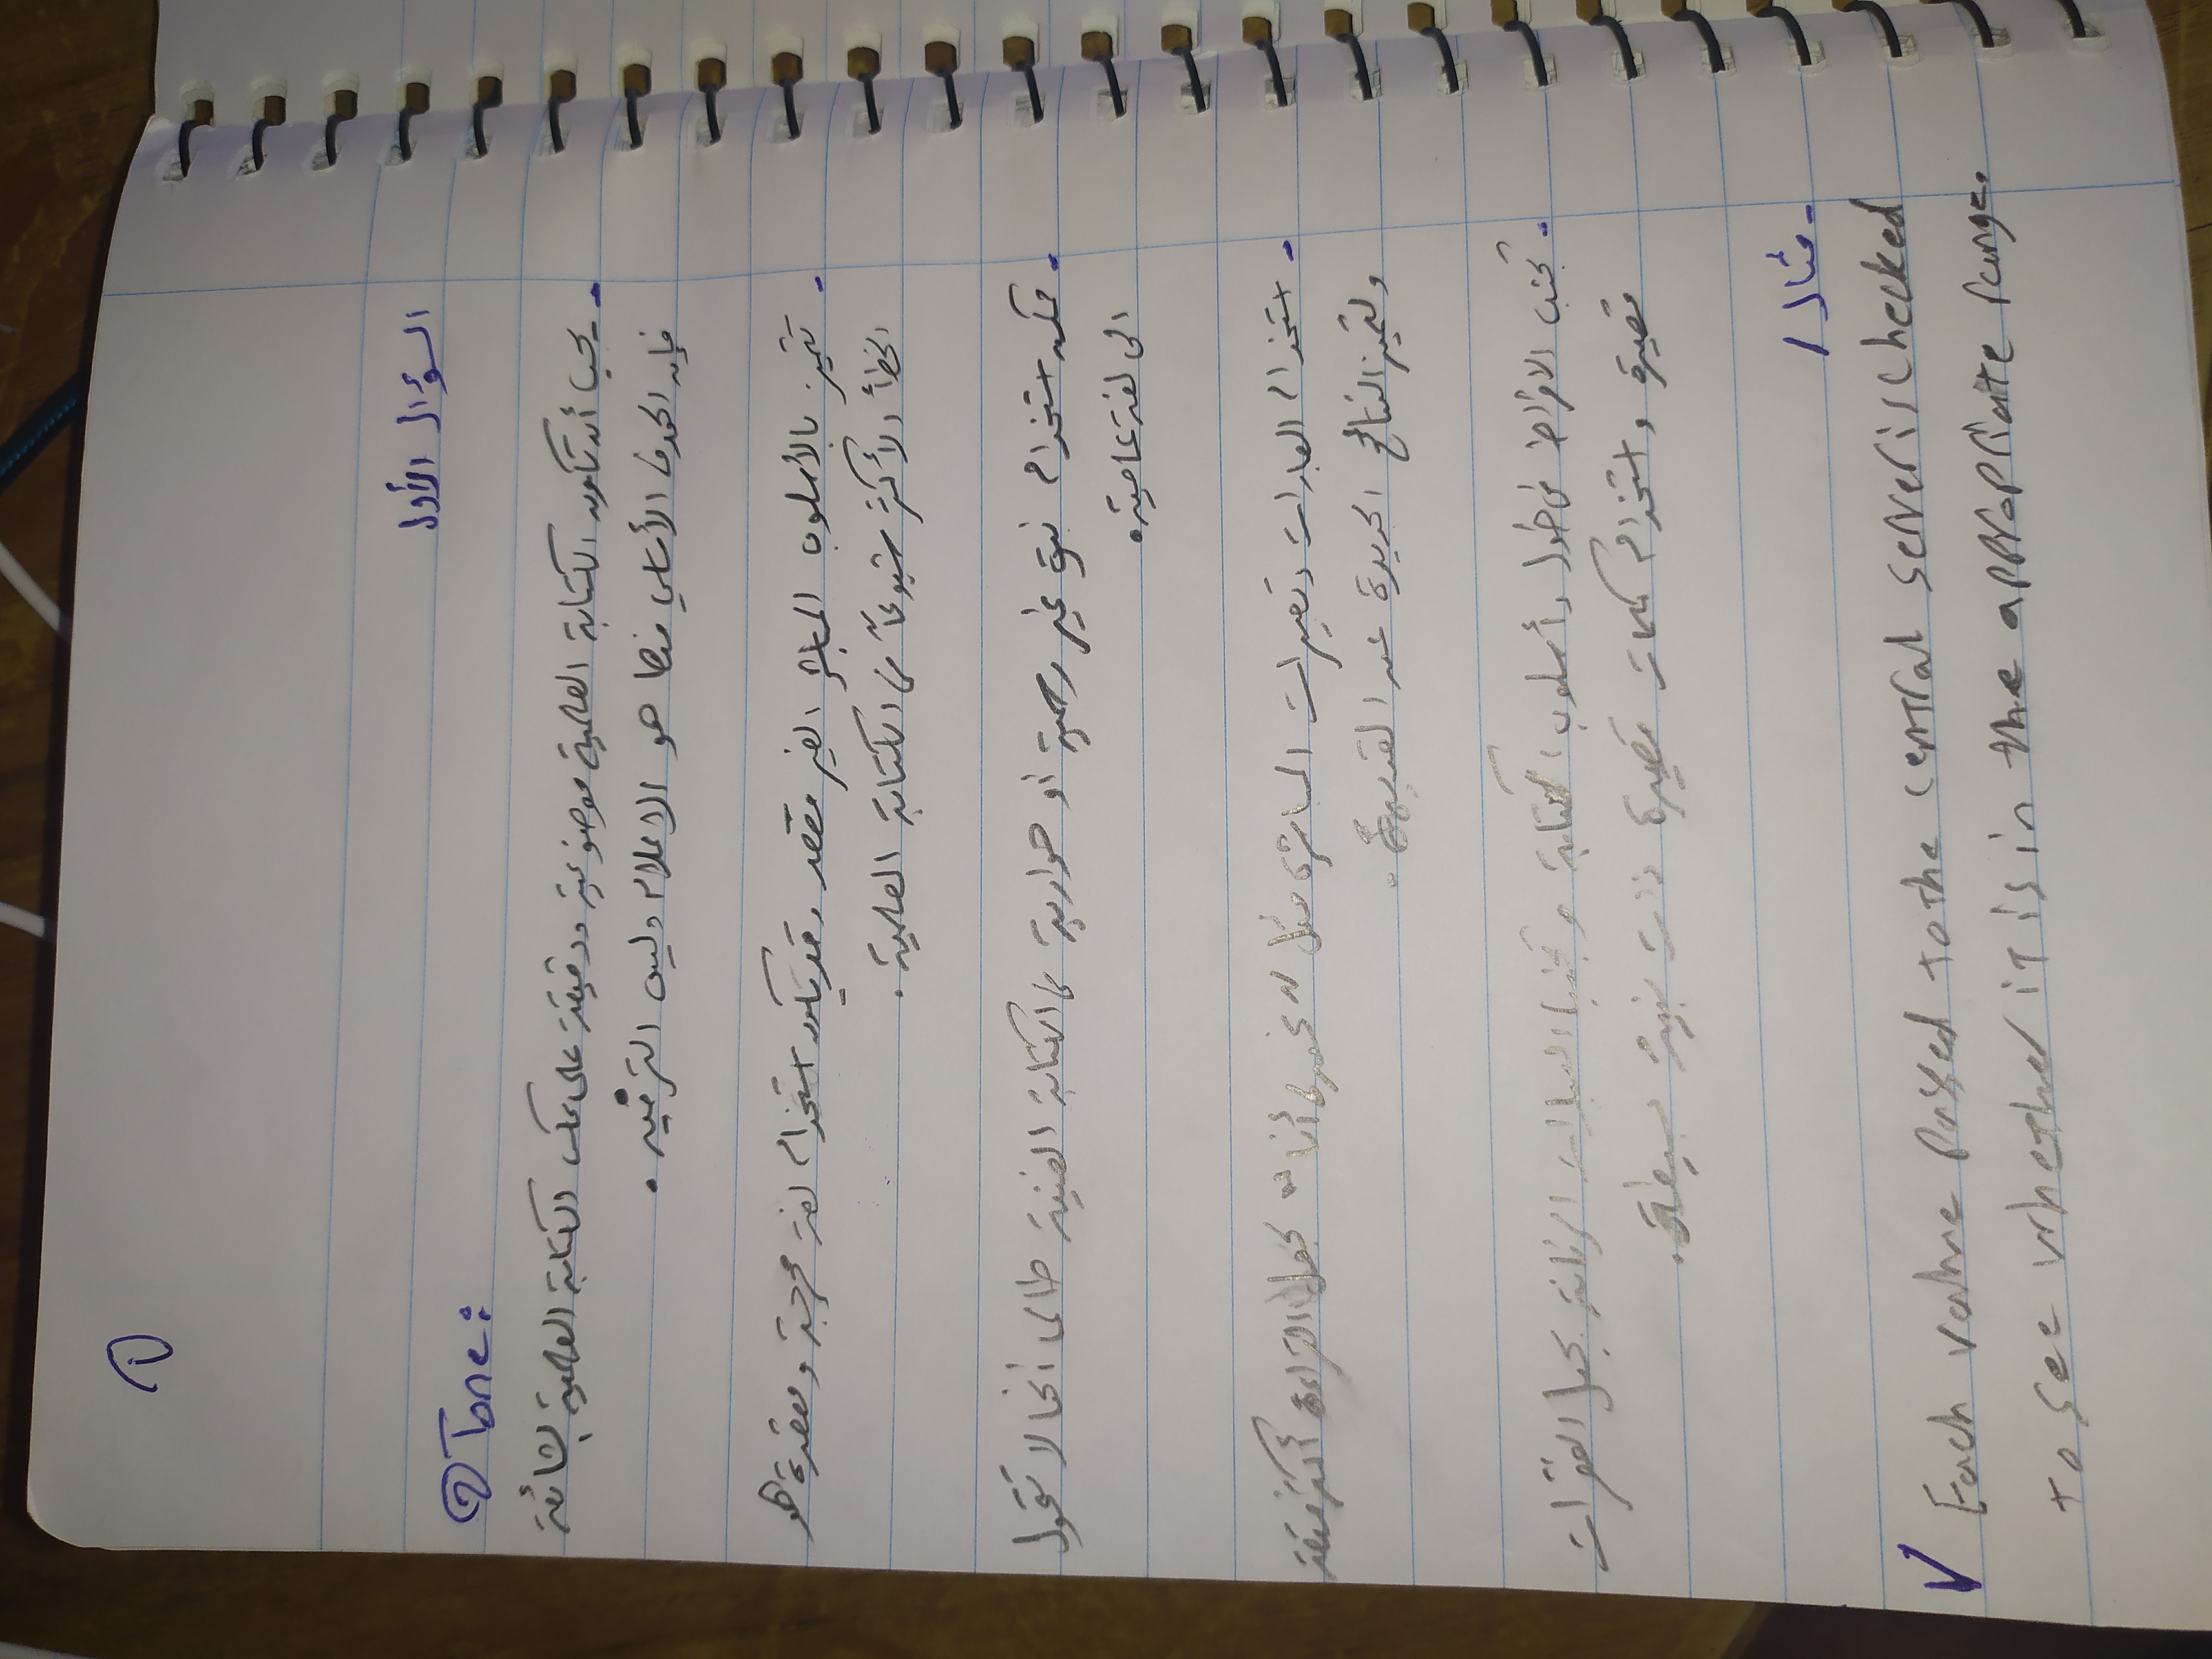 ①
السؤال الأول
② Tone:
- يجب أن تكون الكتابة العلمية موضوعية ودقيقة على عكس الكتابة العلمية الشائعة
فإن الهدف الأساسي منها هو الاعلام وليس الترفيه .
- تتميز بالأسلوب المباشر الغير معقد وقد يكون استخدام لغة محرجة ومعقدة هو
الخطأ الأكثر شيوعاً في الكتابة العلمية .
- يمكن استخدام غير رسمية أو حوارية في الكتابة الفنية طالما أنها لا تتحول
الى لغة عامية .
- استخدام العبارات وتعبيرات المباشرة مثل " نحن، أنا " يجعل القراءة أكثر متعة
ولتميز النتائج الجديدة عن القديمة .
- تجنب الافراط في طول وأسلوب الكتابة وتجنب العبارات الرنانة بجعل الفقرات
قصيرة واستخدام كلمات قصيرة ذات بنية بسيطة .
- مثال /
✓ Each value passed to the central server is checked
to see whether it is in the appropriate range.